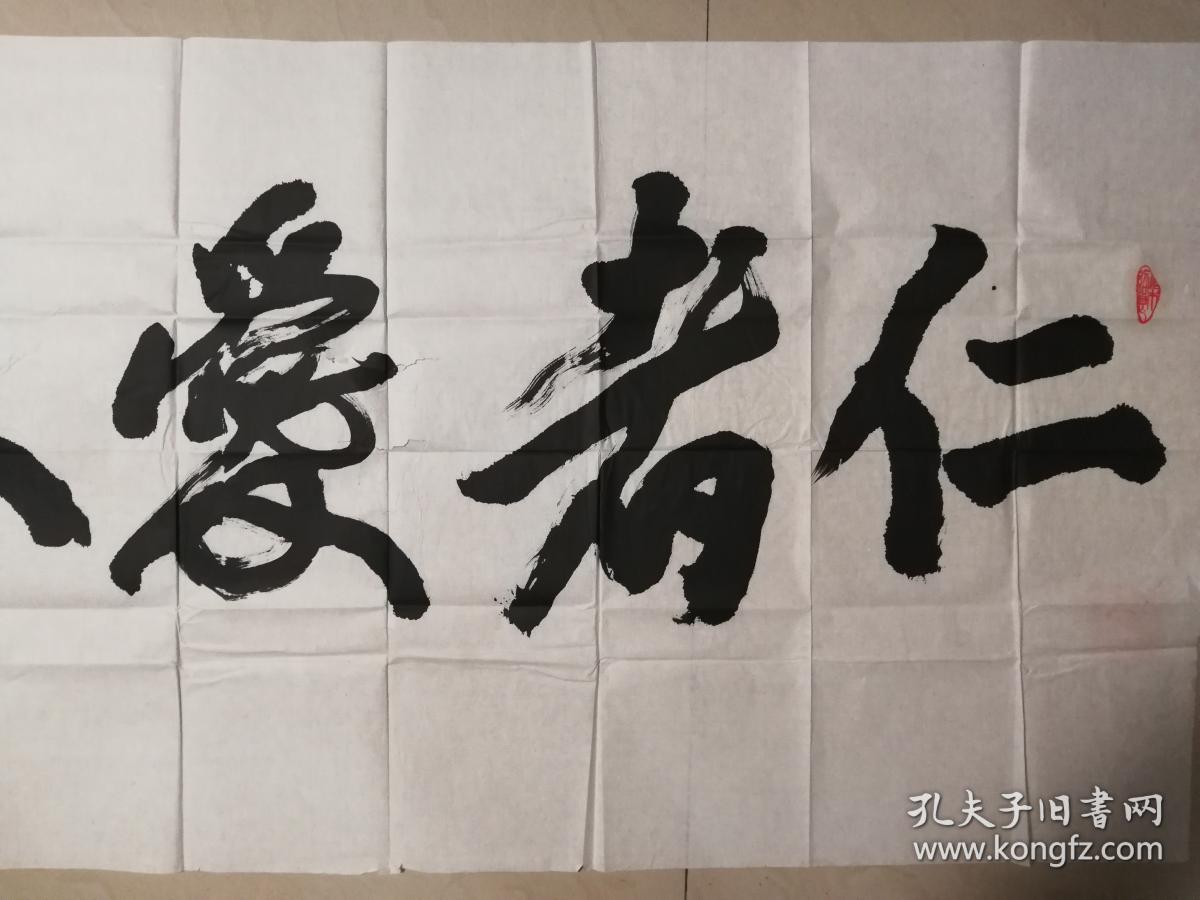 仁者愛
孔夫子旧書网
www.kongfz.com